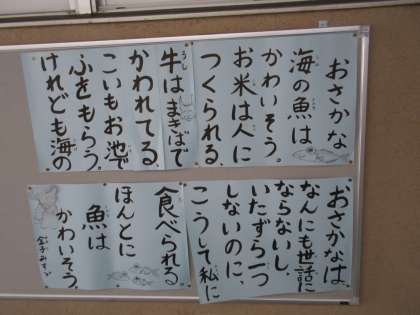 おさかな
海の魚は
かわいそう。
お米は人に
つくられる、
牛はまきばで
かわれてる、
こいもお池で
ふをもらう。
けれども海の
おさかなは、
なんにも世話に
ならないし、
いたずら一つ
しないのに、
こうして私に
食べられる
ほんとに
魚は
かわいそう。
金子みすゞ